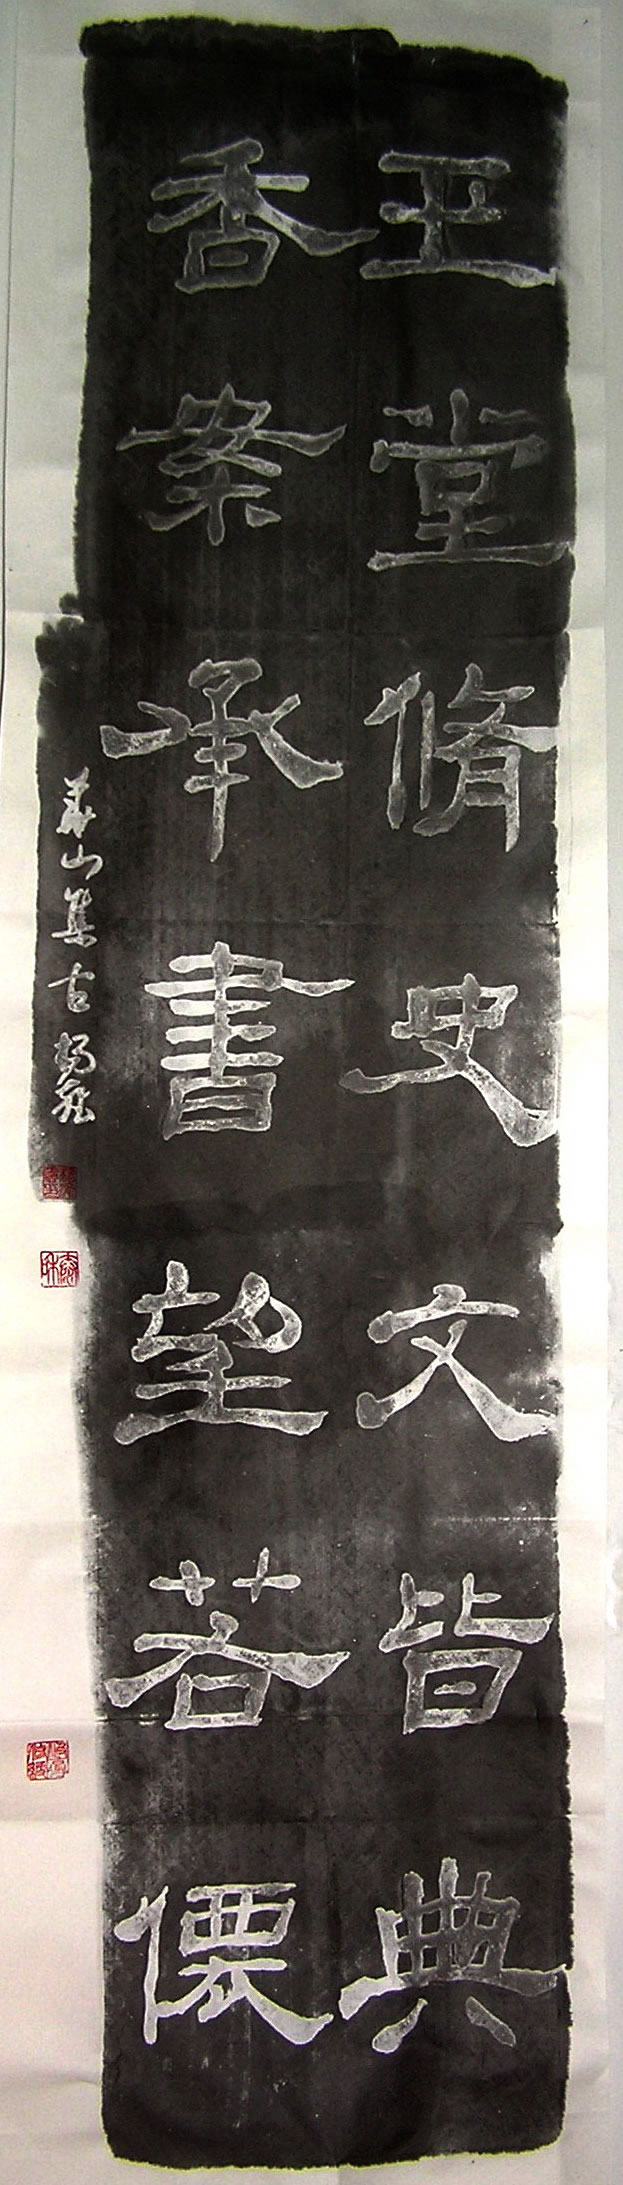 玉堂脩史文皆典
香案承書望若僊
華山集古楊霈